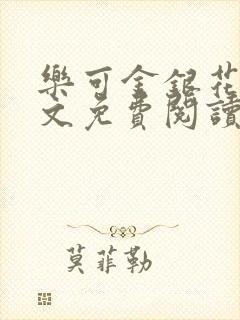 樂可金銀花
文免費閱讀
莫菲勒